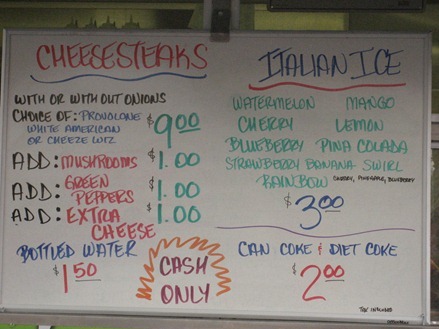 CHEESESTEAKS
WITH OR WITH OUT ONIONS
CHOICE OF: PROVOLONE
WHITE AMERICAN
OR CHEEZE WIZ
$9.00
ADD: MUSHROOMS $1.00
ADD: GREEN PEPPERS $1.00
ADD: EXTRA CHEESE $1.00
BOTTLED WATER
$1.50
CASH
ONLY
ITALIAN ICE
WATERMELON MANGO
CHERRY LEMON
BLUEBERRY PINA COLADA
STRAWBERRY BANANA SWIRL
RAINBOW CHERRY, PINEAPPLE, BLUEBERRY
$3.00
CAN COKE & DIET COKE
$2.00
TAX INCLUDED